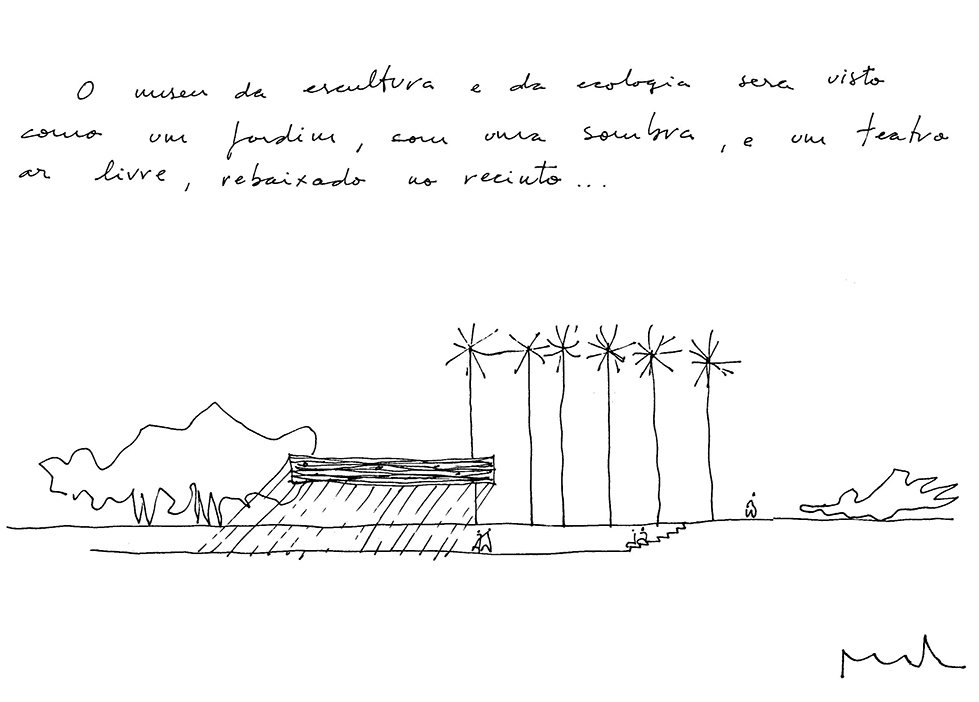 O museu da escultura e da ecologia sera visto
como um jardim, com uma sombra, e um teatro
ar livre, rebaixado no recinto...